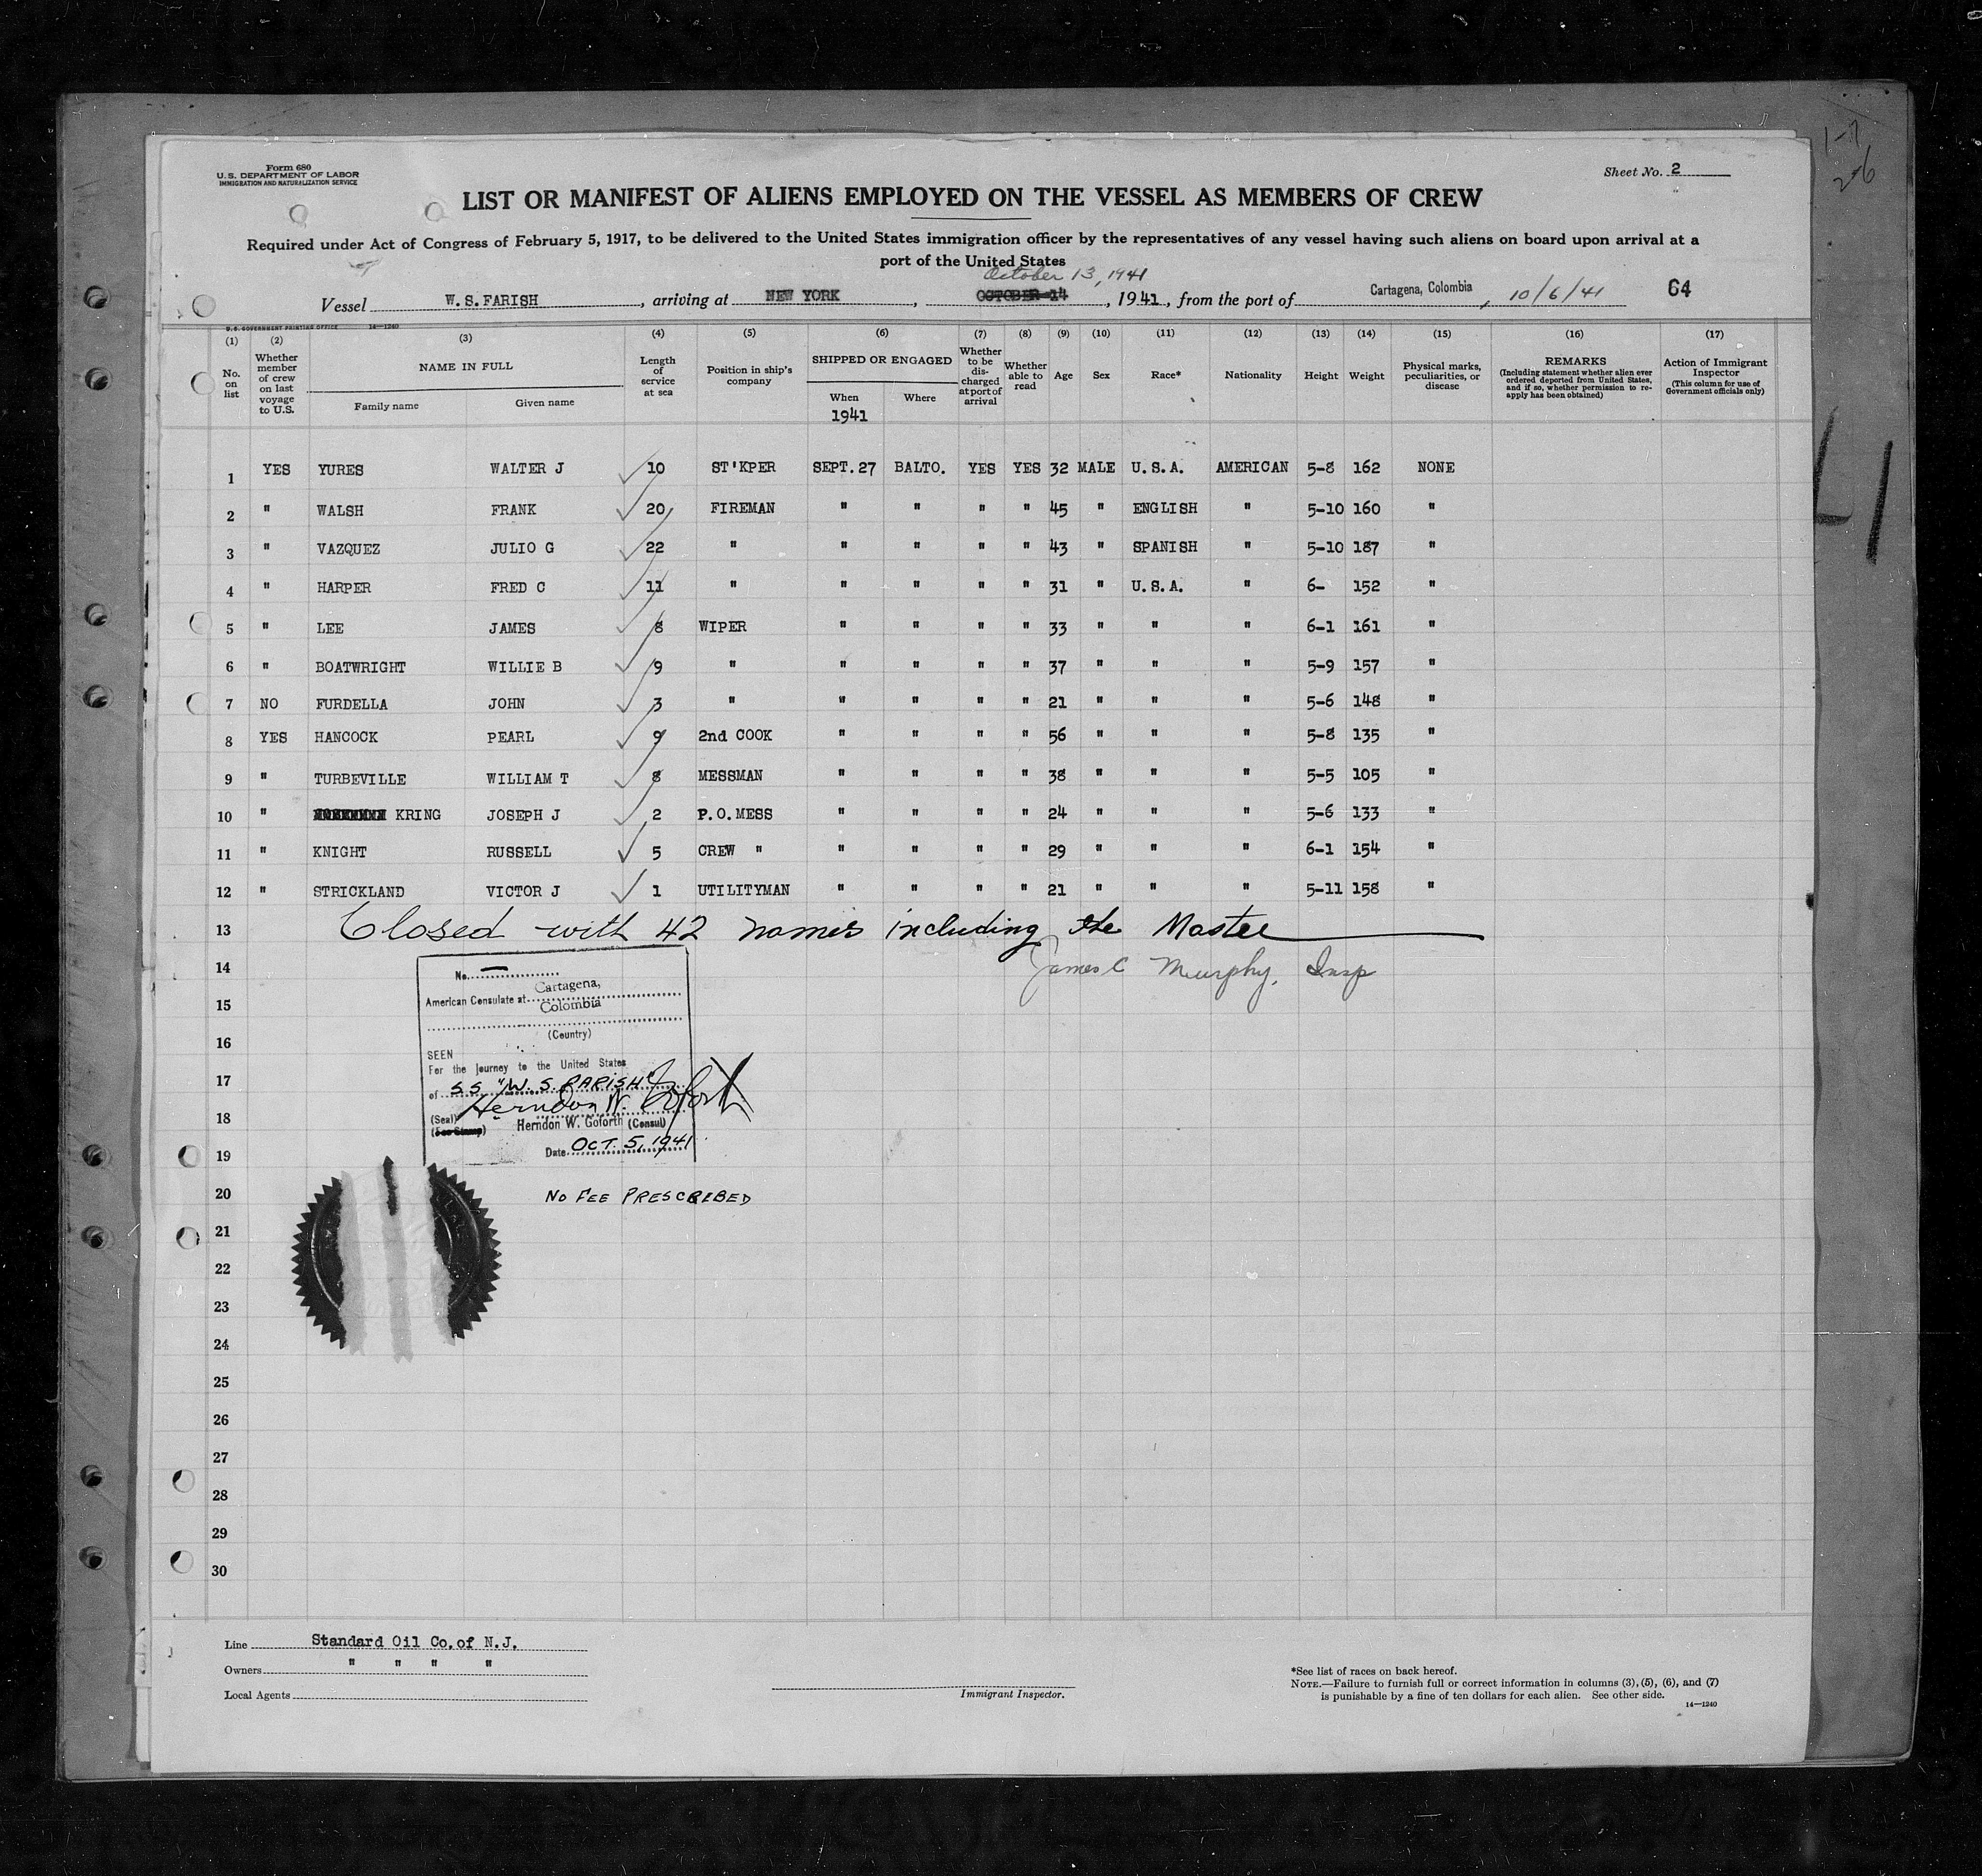 1-7
2-6
Form 680
U.S. DEPARTMENT OF LABOR
IMMIGRATION AND NATURALIZATION SERVICE
Sheet No. 2
LIST OR MANIFEST OF ALIENS EMPLOYED ON THE VESSEL AS MEMBERS OF CREW
Required under Act of Congress of February 5, 1917, to be delivered to the United States immigration officer by the representatives of any vessel having such aliens on board upon arrival at a
port of the United States
October 13, 1941
Vessel W.S.FARISH, arriving at NEW YORK, OCTOBER 14, 1941, from the port of Cartagena, Colombia, 10/6/41 64
U.S. GOVERNMENT PRINTING OFFICE 14—1240
(1) (2) (3) (4) (5) (6) (7) (8) (9) (10) (11) (12) (13) (14) (15) (16) (17)
No. on list
Whether member of crew on last voyage to U.S.
NAME IN FULL
Family name Given name
Length of service at sea
Position in ship's company
SHIPPED OR ENGAGED
When Where
1941
Whether to be discharged at port of arrival
Whether able to read
Age
Sex
Race*
Nationality
Height
Weight
Physical marks, peculiarities, or disease
REMARKS
(Including statement whether alien ever ordered deported from United States, and if so, whether permission to re-apply has been obtained)
Action of Immigrant Inspector
(This column for use of Government officials only)
1 YES YURES WALTER J 10 ST'KPER SEPT.27 BALTO. YES YES 32 MALE U.S.A. AMERICAN 5-8 162 NONE
2 " WALSH FRANK 20 FIREMAN " " " " 45 " ENGLISH " 5-10 160 "
3 " VAZQUEZ JULIO G 22 " " " " " 43 " SPANISH " 5-10 187 "
4 " HARPER FRED C 11 " " " " " 31 " U.S.A. " 6- 152 "
5 " LEE JAMES 8 WIPER " " " " 33 " " " 6-1 161 "
6 " BOATWRIGHT WILLIE B 9 " " " " " 37 " " " 5-9 157 "
7 NO FURDELLA JOHN 3 " " " " " 21 " " " 5-6 148 "
8 YES HANCOCK PEARL 9 2nd COOK " " " " 56 " " " 5-8 135 "
9 " TURBEVILLE WILLIAM T 8 MESSMAN " " " " 38 " " " 5-5 105 "
10 " KRING JOSEPH J 2 P.O.MESS " " " " 24 " " " 5-6 133 "
11 " KNIGHT RUSSELL 5 CREW " " " " " 29 " " " 6-1 154 "
12 " STRICKLAND VICTOR J 1 UTILITYMAN " " " " 21 " " " 5-11 158 "
13 Closed with 42 names including the Master
14 James C Murphy, Insp
15
16
17
18
19
20
21
22
23
24
25
26
27
28
29
30
No.
American Consulate at Cartagena,
Colombia
(Country)
SEEN
For the journey to the United States
of S.S. "W. S. FARISH"
Herndon W. Goforth
(Seal)
(Fee Stamp) Herndon W. Goforth (Consul)
Date OCT. 5, 1941
NO FEE PRESCRIBED
Line Standard Oil Co. of N.J.
Owners " " " "
Local Agents
Immigrant Inspector.
*See list of races on back hereof.
NOTE.—Failure to furnish full or correct information in columns (3), (5), (6), and (7)
is punishable by a fine of ten dollars for each alien. See other side.
14—1240